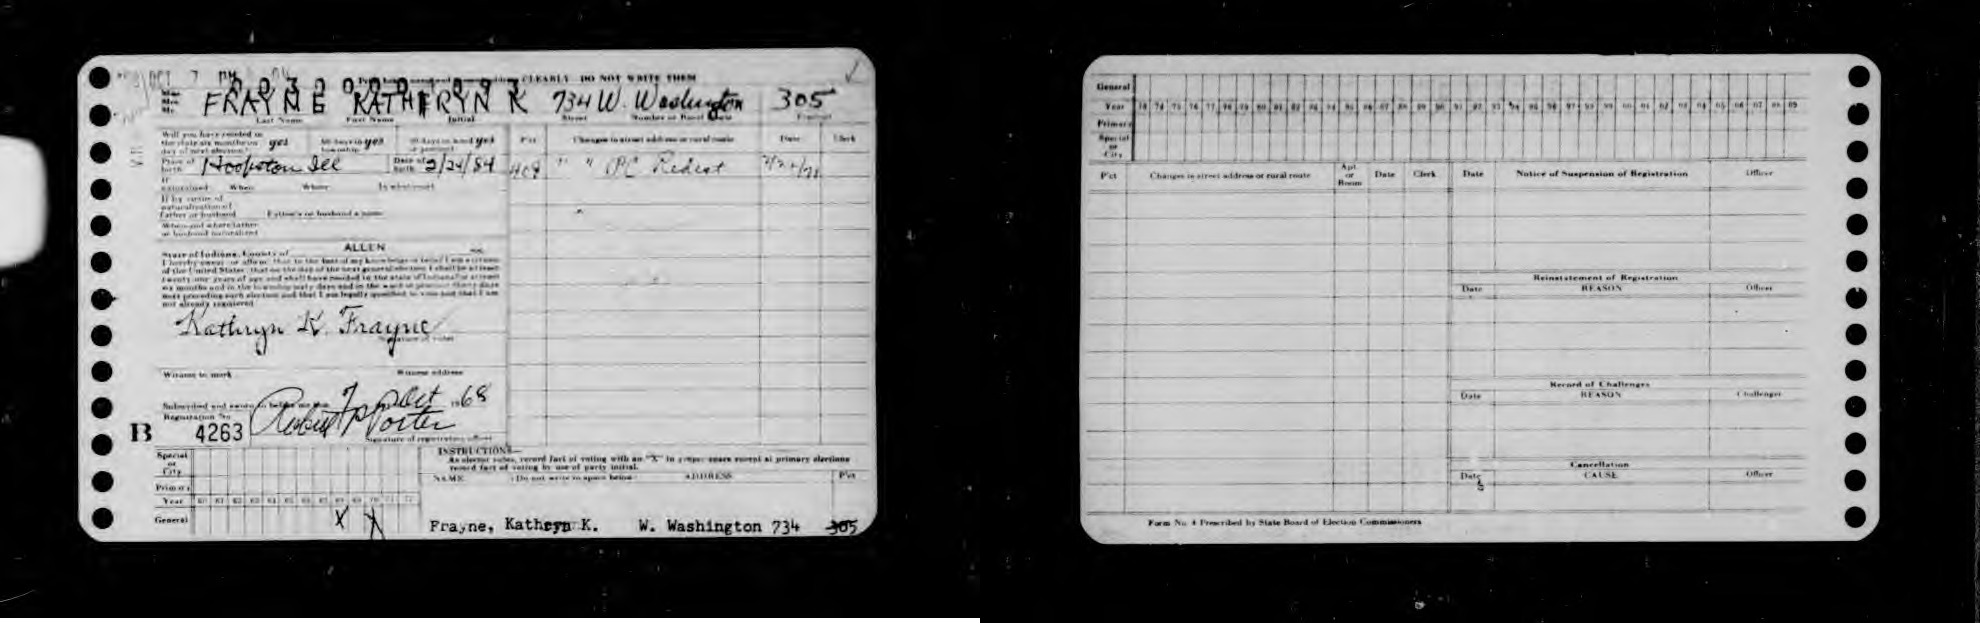 OCT 7 PM
0030000 1093
CLEARLY DO NOT WRITE THEM
Miss
Mrs.
Mr.
FRAYNE KATHERYN K 734 W. Washington 305
Last Name First Name Initial Street Number or Rural Route Precinct
Will you have resided in the state six months on day of next election? yes 60 days in township yes 30 days in ward or precinct yes
P'ct Changes in street address or rural route Date Clerk
Place of birth Hoopston Ill Date of birth 2/24/84
409 " " PC Redist
If naturalized When Where In what court
If by virtue of naturalization of father or husband Father's or husband's name
When and where father or husband naturalized
State of Indiana, County of ALLEN ss:
I hereby swear or affirm that to the best of my knowledge or belief I am a citizen
of the United States, that on the day of the next general election I shall be at least
twenty-one years of age and shall have resided in the state of Indiana at least
six months and in the township sixty days and in the ward or precinct thirty days
next preceding such election and that I am legally qualified to vote and that I am
not already registered
Kathryn K. Frayne
Signature of voter
Witness to mark Witness address
Subscribed and sworn to before me this 7 Oct 1968
Registration No.
B 4263
Robert Porter
Signature of registration officer
INSTRUCTIONS—
As elector votes, record fact of voting with an "X" in proper space except at primary elections
record fact of voting by use of party initial.
NAME (Do not write in space below) ADDRESS P'ct
Special or City
Primary
Year 60 61 62 63 64 65 66 67 68 69 70 71 72
General X X
Frayne, Kathryn K. W. Washington 734 305
General
Year 73 74 75 76 77 78 79 80 81 82 83 84 85 86 87 88 89 90 91 92 93 94 95 96 97 98 99 00 01 02 03 04 05 06 07 08 09
Primary
Special or City
P'ct Changes in street address or rural route Apt. or Room Date Clerk Date Notice of Suspension of Registration Officer
Reinstatement of Registration
Date REASON Officer
Record of Challenges
Date REASON Challenger
Cancellation
Date CAUSE Officer
Form No. 4 Prescribed by State Board of Election Commissioners